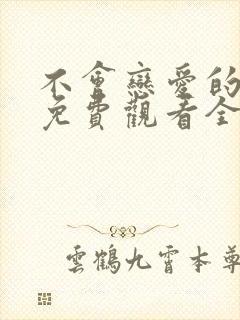 不會戀愛的
免費觀看全
雲鶴九霄本尊